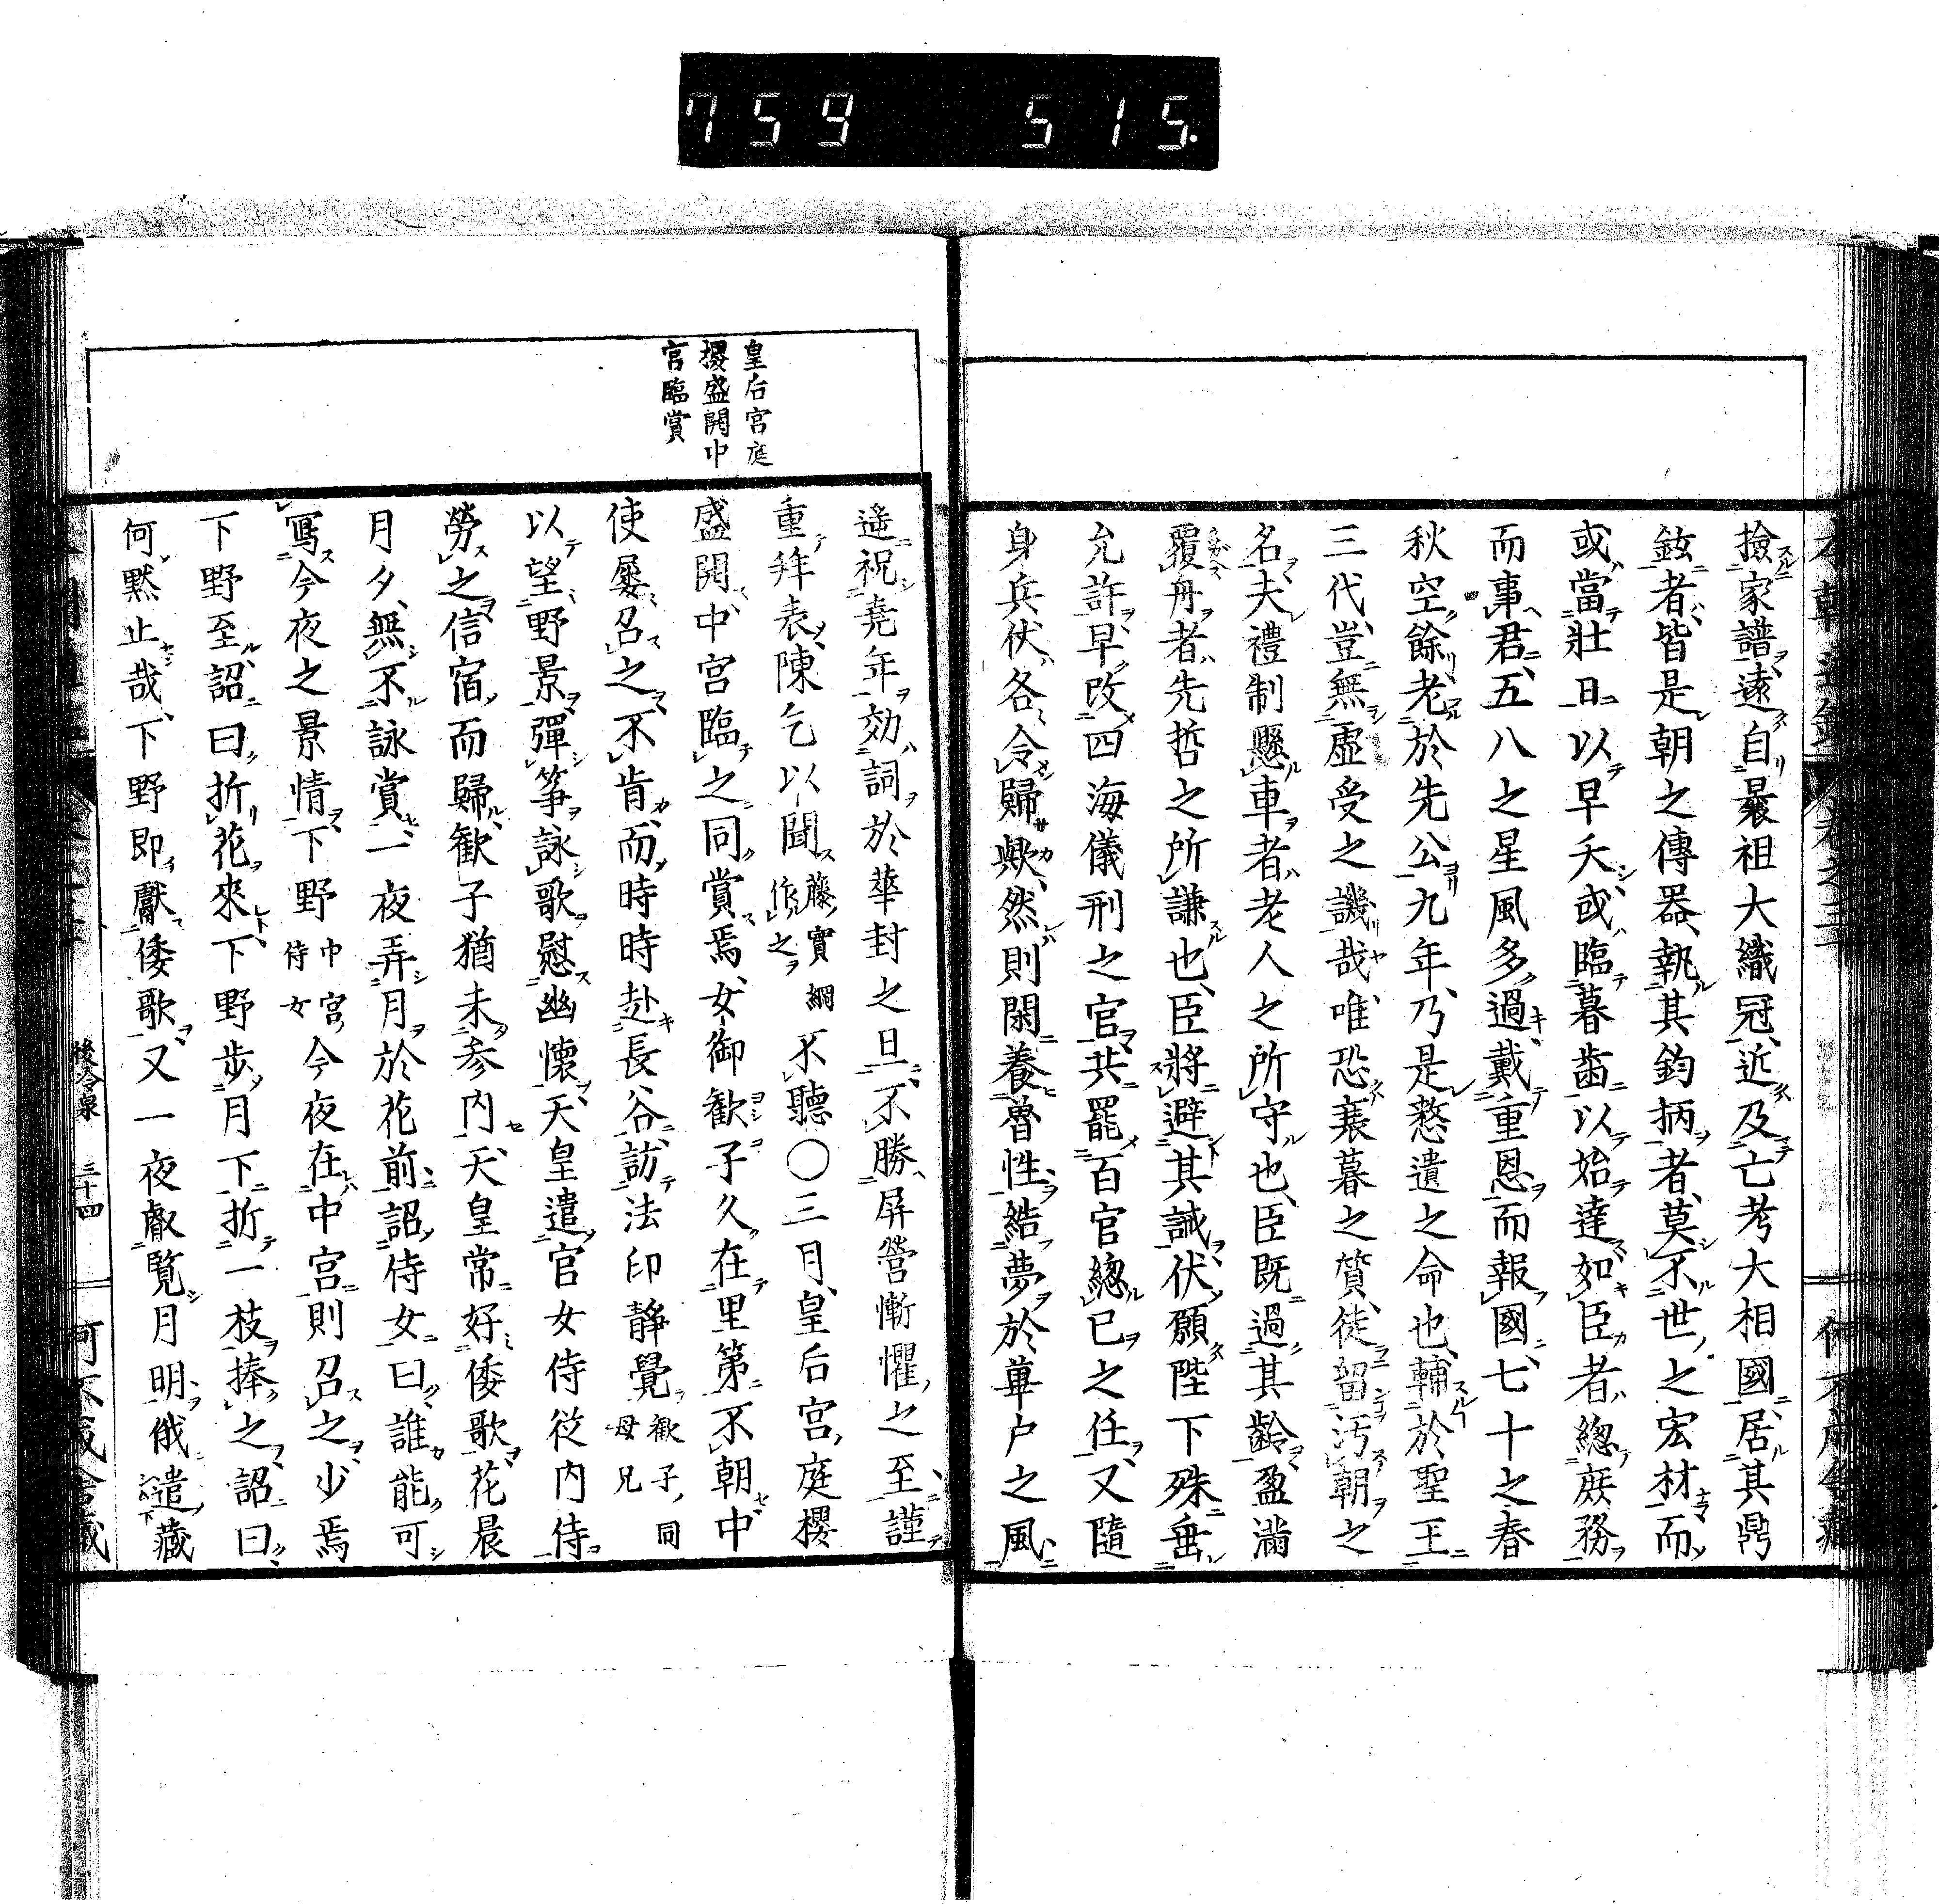 759 515.
撿家譜遠自曩祖大織冠近及亡考大相國居其鼎
鉉者皆是朝之傳器執其鈞柄者莫不世之宏材而
或當壯日以早夭或臨暮齒以始達如臣者總庶務
而事君五八之星風多過戴重恩而報國七十之春
秋空餘老於先公九年乃是愁遺之命也輔於聖王
三代豈無虛受之譏哉唯恐衰暮之質徒留汚朝之
名夫禮制懸車者老人之所守也臣既過其齡盈滿
覆舟者先哲之所謙也臣將避其誡伏願陛下殊垂
允許早改四海儀刑之官共罷百官總已之任又隨
身兵仗各令歸歟然則閑養魯性結夢於蓽户之風
皇后宮庭
櫻盛開中
宮臨賞
遙祝堯年効詞於華封之旦不勝屏營慚懼之至謹
重拜表陳乞以聞藤實綱作之不聽〇三月皇后宮庭櫻
盛開中宮臨之同賞焉女御歡子久在里第不朝中
使屢召之不肯而時時赴長谷訪法印靜覺歡子同母兄
以望野景彈箏詠歌慰幽懷天皇遣官女侍從內侍
勞之信宿而歸歡子猶未參內天皇常好倭歌花晨
月夕無不詠賞一夜弄月於花前詔侍女曰誰能可
寫今夜之景情下野中宮侍女今夜在中宮則召之少焉
下野至詔曰折花來下野步月下折一枝捧之詔曰
何默止哉下野即獻倭歌又一夜叡覽月明俄遣藏
後冷泉 三十四